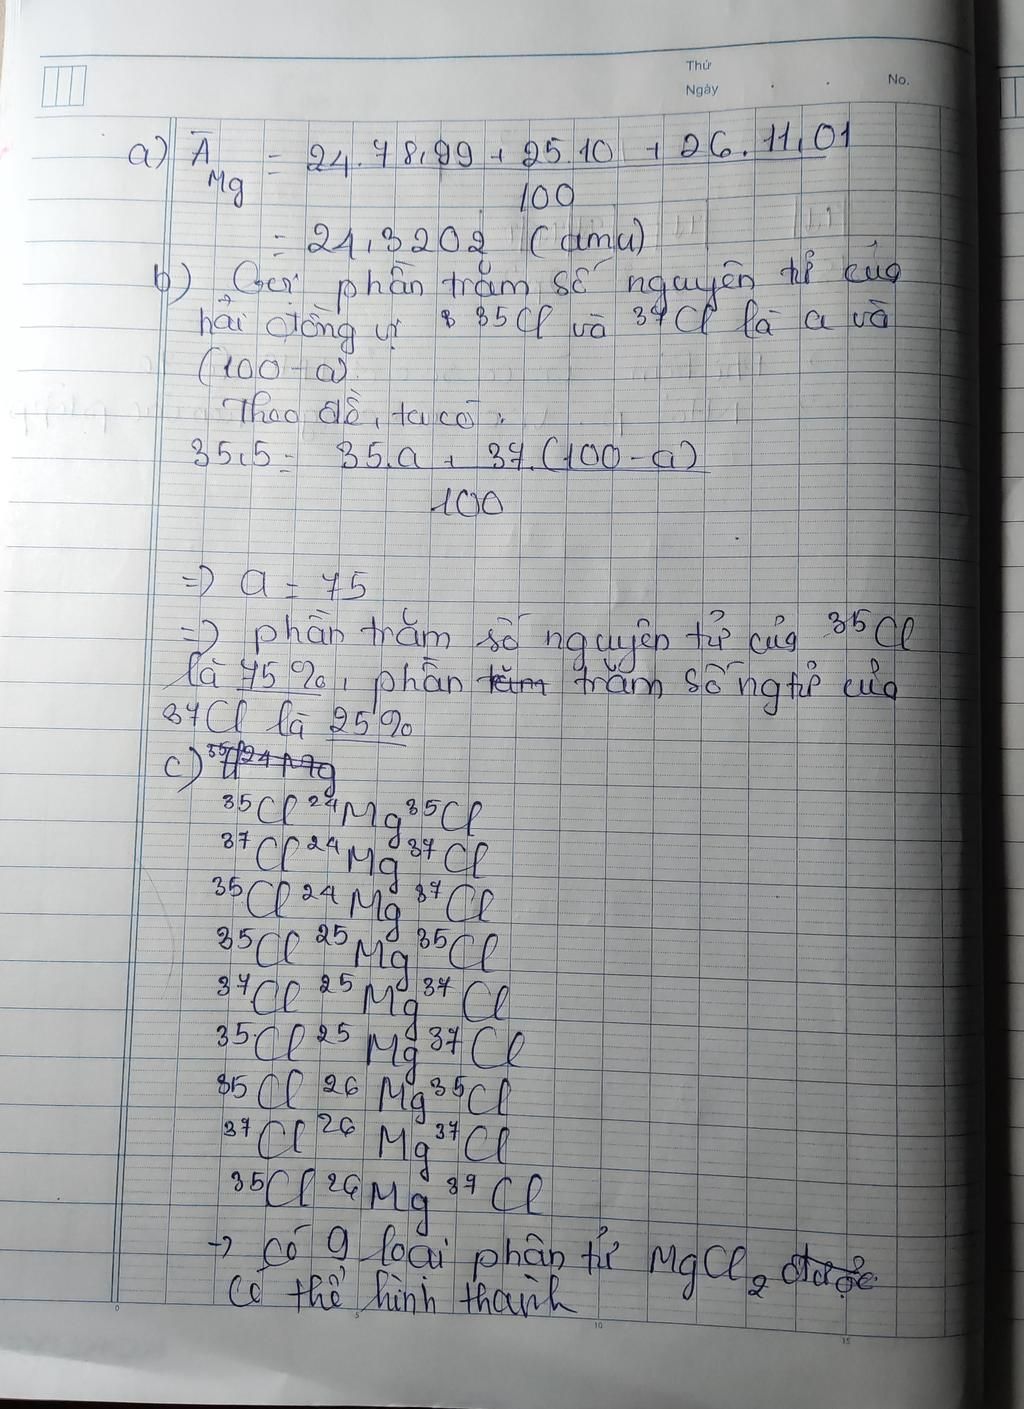 Thứ
Ngày
No.
a) Ā Mg = 24.78,99 + 25.10 + 26.11,01
100
= 24,3202 (amu)
b) Gọi phần trăm số nguyên tử của
hai đồng vị 35Cl và 37Cl là a và
(100 - a)
Theo đề, ta có:
35,5 = 35.a + 37.(100 - a)
100
=> a = 75
=> phần trăm số nguyên tử của 35Cl
là 75%, phần trăm số ng tử của
37Cl là 25%
c)
35Cl 24Mg 35Cl
37Cl 24Mg 37Cl
35Cl 24Mg 37Cl
35Cl 25Mg 35Cl
37Cl 25Mg 37Cl
35Cl 25Mg 37Cl
35Cl 26Mg 35Cl
37Cl 26Mg 37Cl
35Cl 26Mg 37Cl
→ có 9 loại phân tử MgCl2 được
có thể hình thành
5
10
15